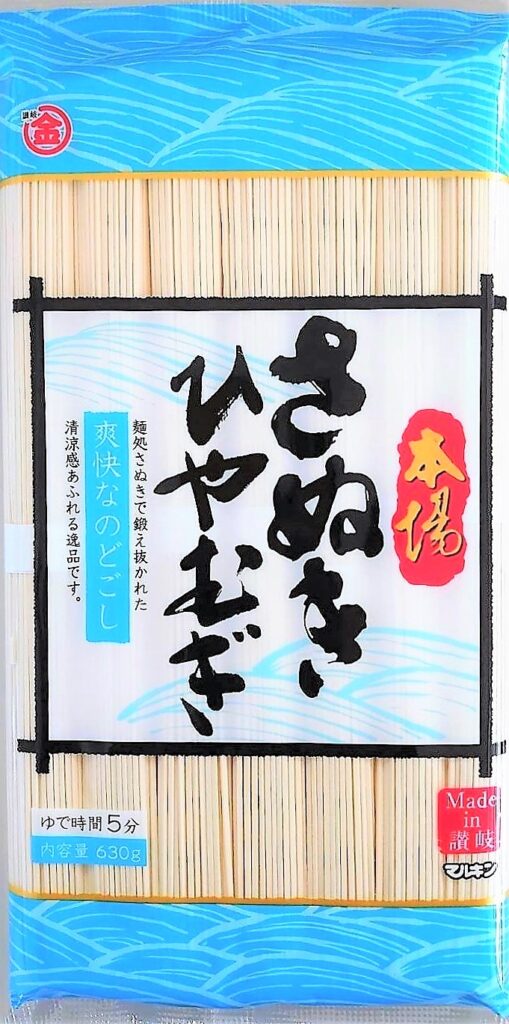 讃岐
金
本場
さぬき
ひやむぎ
麺処さぬきで鍛え抜かれた
爽快なのどごし
清涼感あふれる逸品です。
ゆで時間5分
内容量 630g
Made
in
讃岐
マルキン